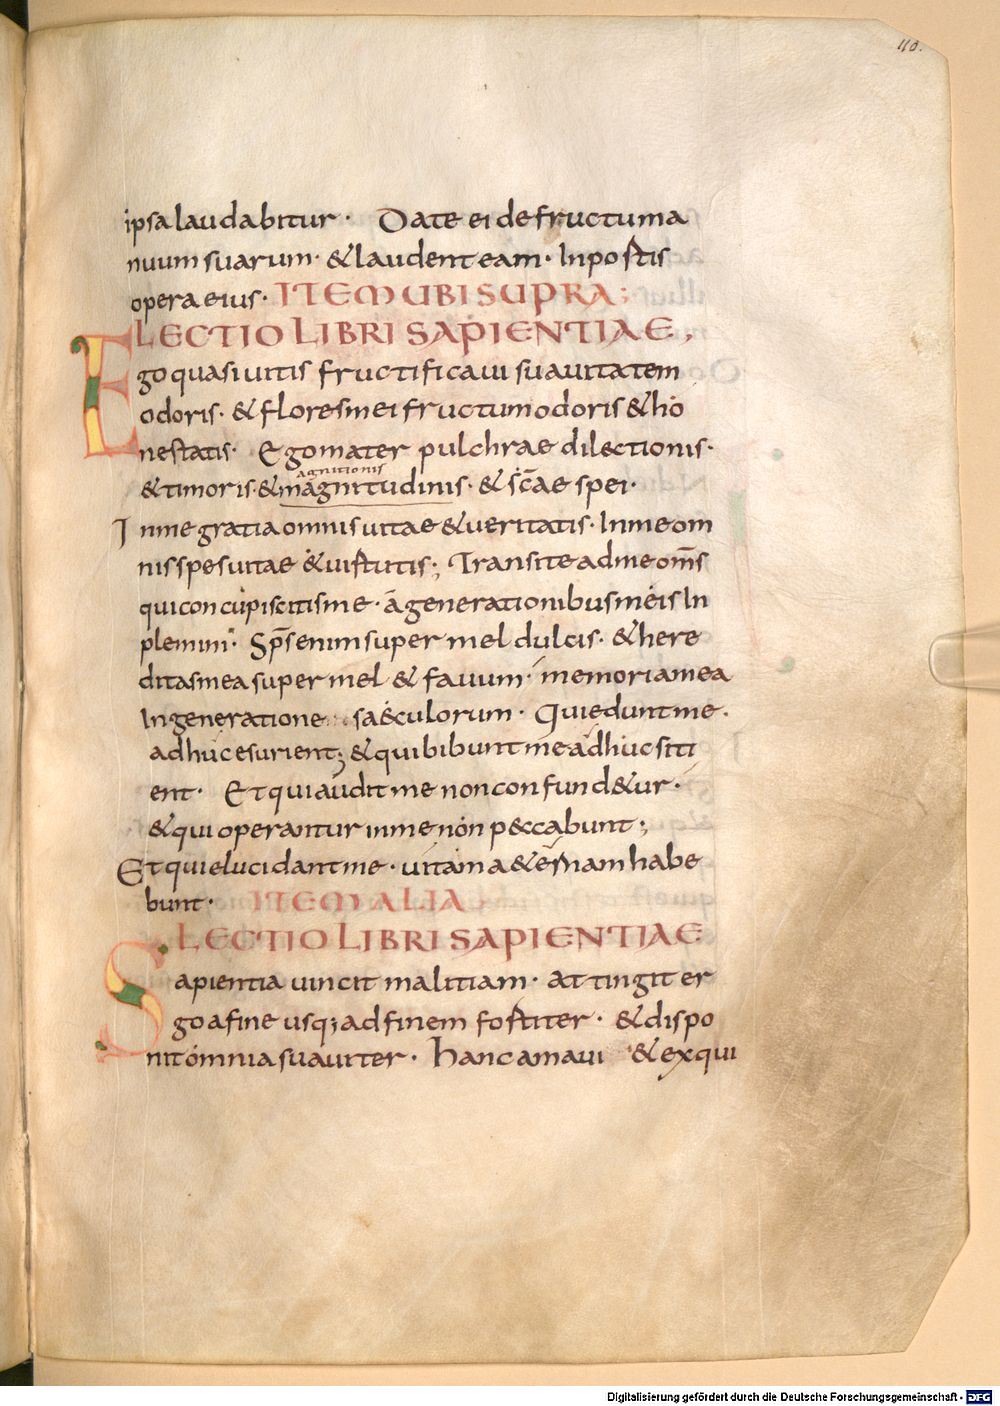 110.
ipsa laudabitur · Date ei defructu ma
nuum suarum · & laudent eam · Inportis
opera eius · ITEM UBI SUPRA;
LECTIO LIBRI SAPIENTIAE,
Ego quasi uitis fructificaui suauitatem
odoris · & flores mei fructum odoris & ho
nestatis · Ego mater pulchrae dilectionis ·
agnitionis
& timoris · & magnitudinis · & sc̄ae spei ·
In me gratia omnis uitae & ueritatis · In me om
nis spes uitae & uirtutis; Transite ad me om̄s
qui concupiscitis me · a generationibus meis In
plemini · Sp̄s enim super mel dulcis · & here
ditas mea super mel & fauum · memoria mea
In generatione saeculorum · Qui edunt me ·
adhuc esurient; & qui bibunt me adhuc siti
ent · Et qui audit me non confund&ur ·
& qui operantur in me non peccabunt;
Et qui elucidant me · uitam a&ernam habe
bunt · ITEM ALIA
LECTIO LIBRI SAPIENTIAE
Sapientia uincit malitiam · Attingit er
go afine usq; ad finem fortiter · & dispo
nit omnia suauiter · hanc amaui & exqui
Digitalisierung gefördert durch die Deutsche Forschungsgemeinschaft - DFG